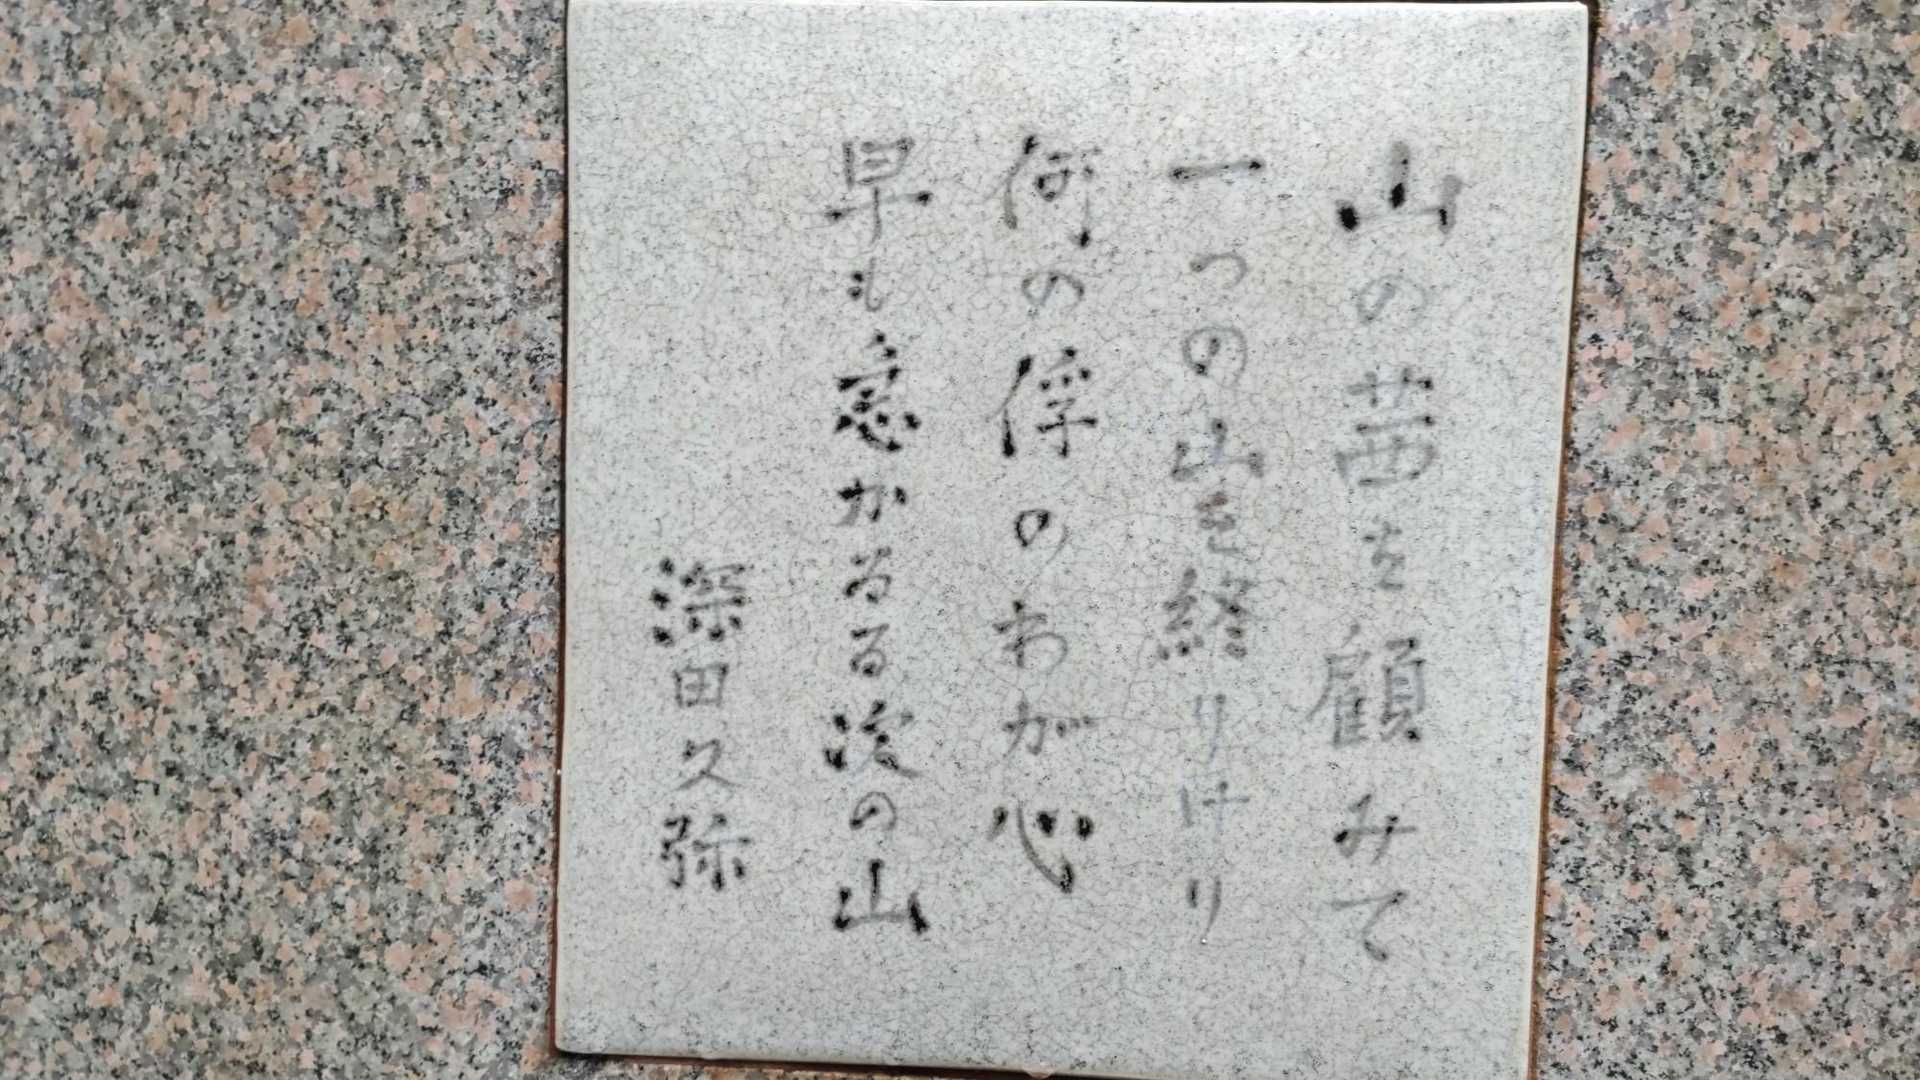 山の茜を顧みて
一つの山を終りけり
何の俘のわが心
早も急かるる次の山
深田久弥